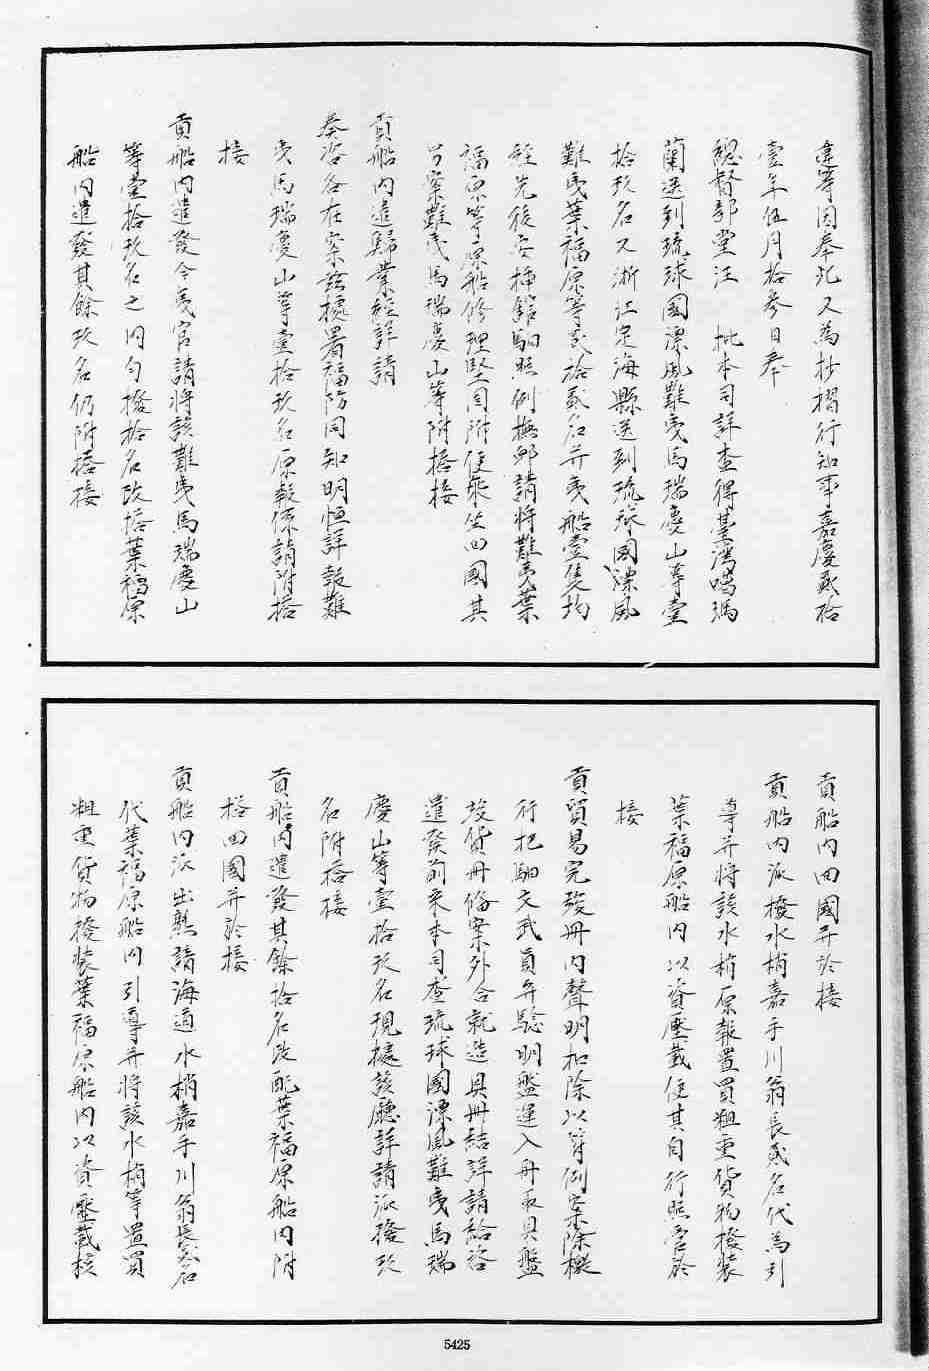 違等因奉此又為抄摺行知事嘉慶貳拾
壹年伍月拾參日奉
總督部堂汪　批本司詳查得臺灣噶瑪
蘭送到琉球國漂風難夷馬瑞慶山等壹
拾玖名又浙江定海縣送到琉球國漂風
難夷葉福原等貳拾貳名并夷船壹隻均
經先後安插館驛照例撫卹請將難夷葉
福原等原船修理堅固附便乘坐回國其
另案難夷馬瑞慶山等附搭接
貢船內遣歸業經詳請
奏咨各在案茲據署福防同知明恒詳報難
夷馬瑞慶山等壹拾玖名原報係請附搭
接
貢船內遣發今夷官請將該難夷馬瑞慶山
等壹拾玖名之內勻撥拾名改搭葉福原
船內遣發其餘玖名仍附搭接
貢船內回國并於接
貢船內派撥水梢嘉手川翁長貳名代為引
導并將該水梢原報置買粗重貨物撥裝
葉福原船內以資壓載便其自行照管於
接
貢貿易完竣冊內聲明扣除以符例案除檄
行把驛文武員弁驗明盤運入舟取具盤
竣貨冊備案外合就造具冊結詳請給咨
遣發前來本司查琉球國漂風難夷馬瑞
慶山等壹拾玖名現據該廳詳請派撥玖
名附搭接
貢船內遣發其餘拾名改配葉福原船內附
搭回國并於接
貢船內派出熟諳海道水梢嘉手川翁長貳名
代葉福原船內引導并將該水梢等置買
粗重貨物撥裝葉福原船內以資壓載核
5425